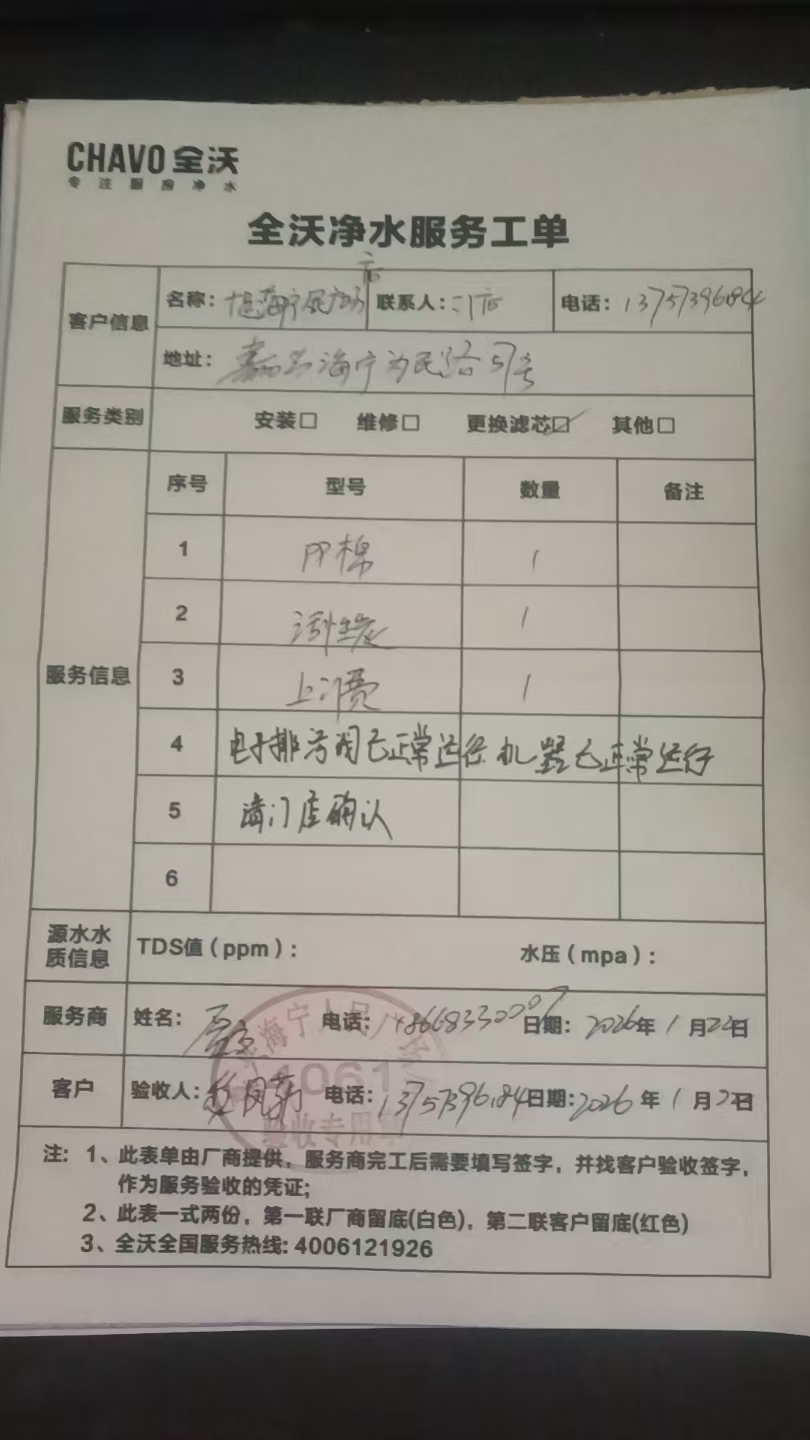 CHAVO 全沃
专注厨房净水
全沃净水服务工单
客户信息
名称： 海宁 店
联系人：门店
电话：13757396184
地址：嘉兴海宁为民路51号
服务类别
安装□ 维修□ 更换滤芯☑ 其他□
服务信息
序号 型号 数量 备注
1 PP棉 1
2 活性炭 1
3 上门费 1
4 电子排污阀已正常运行 机器已正常运行
5 请门店确认
6
源水水质信息
TDS值（ppm）： 水压（mpa）：
服务商 姓名： 电话：18668330007 日期：2026年1月22日
客户 验收人： 电话：13757396184 日期：2026年1月22日
海宁人民广
061
验收专用章
注：1、此表单由厂商提供，服务商完工后需要填写签字，并找客户验收签字，
作为服务验收的凭证；
2、此表一式两份，第一联厂商留底(白色)，第二联客户留底(红色)
3、全沃全国服务热线: 4006121926